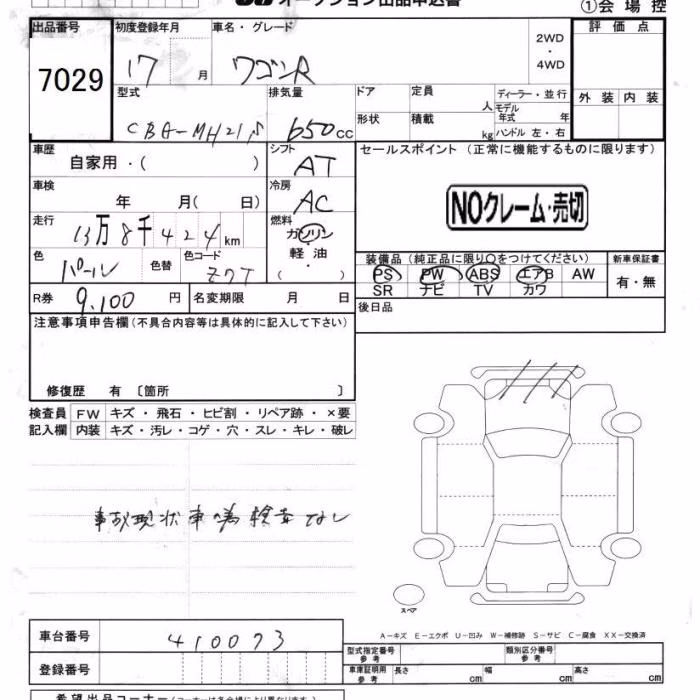 オークション出品申込書
①会場控
出品番号 初度登録年月 車名・グレード 評価点
7029 17 月 ワゴンR 2WD ・ 4WD
型式 排気量 ドア 定員 人 ディーラー・並行 外装 内装
モデル年式 年
CBA-MH21S 650 cc 形状 積載 kg ハンドル 左・右
車歴 シフト セールスポイント (正常に機能するものに限ります)
自家用・( ) AT
車検 冷房
年 月( 日) AC NOクレーム・売切
走行 燃料
13万8千424km ガソリン
色 色替 色コード 軽油 装備品 (純正品に限り○をつけてください) 新車保証書
パール Z7T ・( ) PS PW ABS エアB AW 有・無
SR ナビ TV カワ
R券 9,100 円 名変期限 月 日 後日品
注意事項申告欄(不具合内容等は具体的に記入して下さい)
修復歴 有 〔箇所 〕
検査員 FW キズ・飛石・ヒビ割・リペア跡・×要
記入欄 内装 キズ・汚レ・コゲ・穴・スレ・キレ・破レ
事故現状車の為検査なし
スペア
A−キズ E−エクボ U−凹み W−補修跡 S−サビ C−腐食 XX−交換済
車台番号 410073 型式指定番号 参考 類別区分番号 参考
登録番号 車庫証明用 参考 長さ cm 幅 cm 高さ cm
希望出品コーナー(コーナーは各会場により異なります)